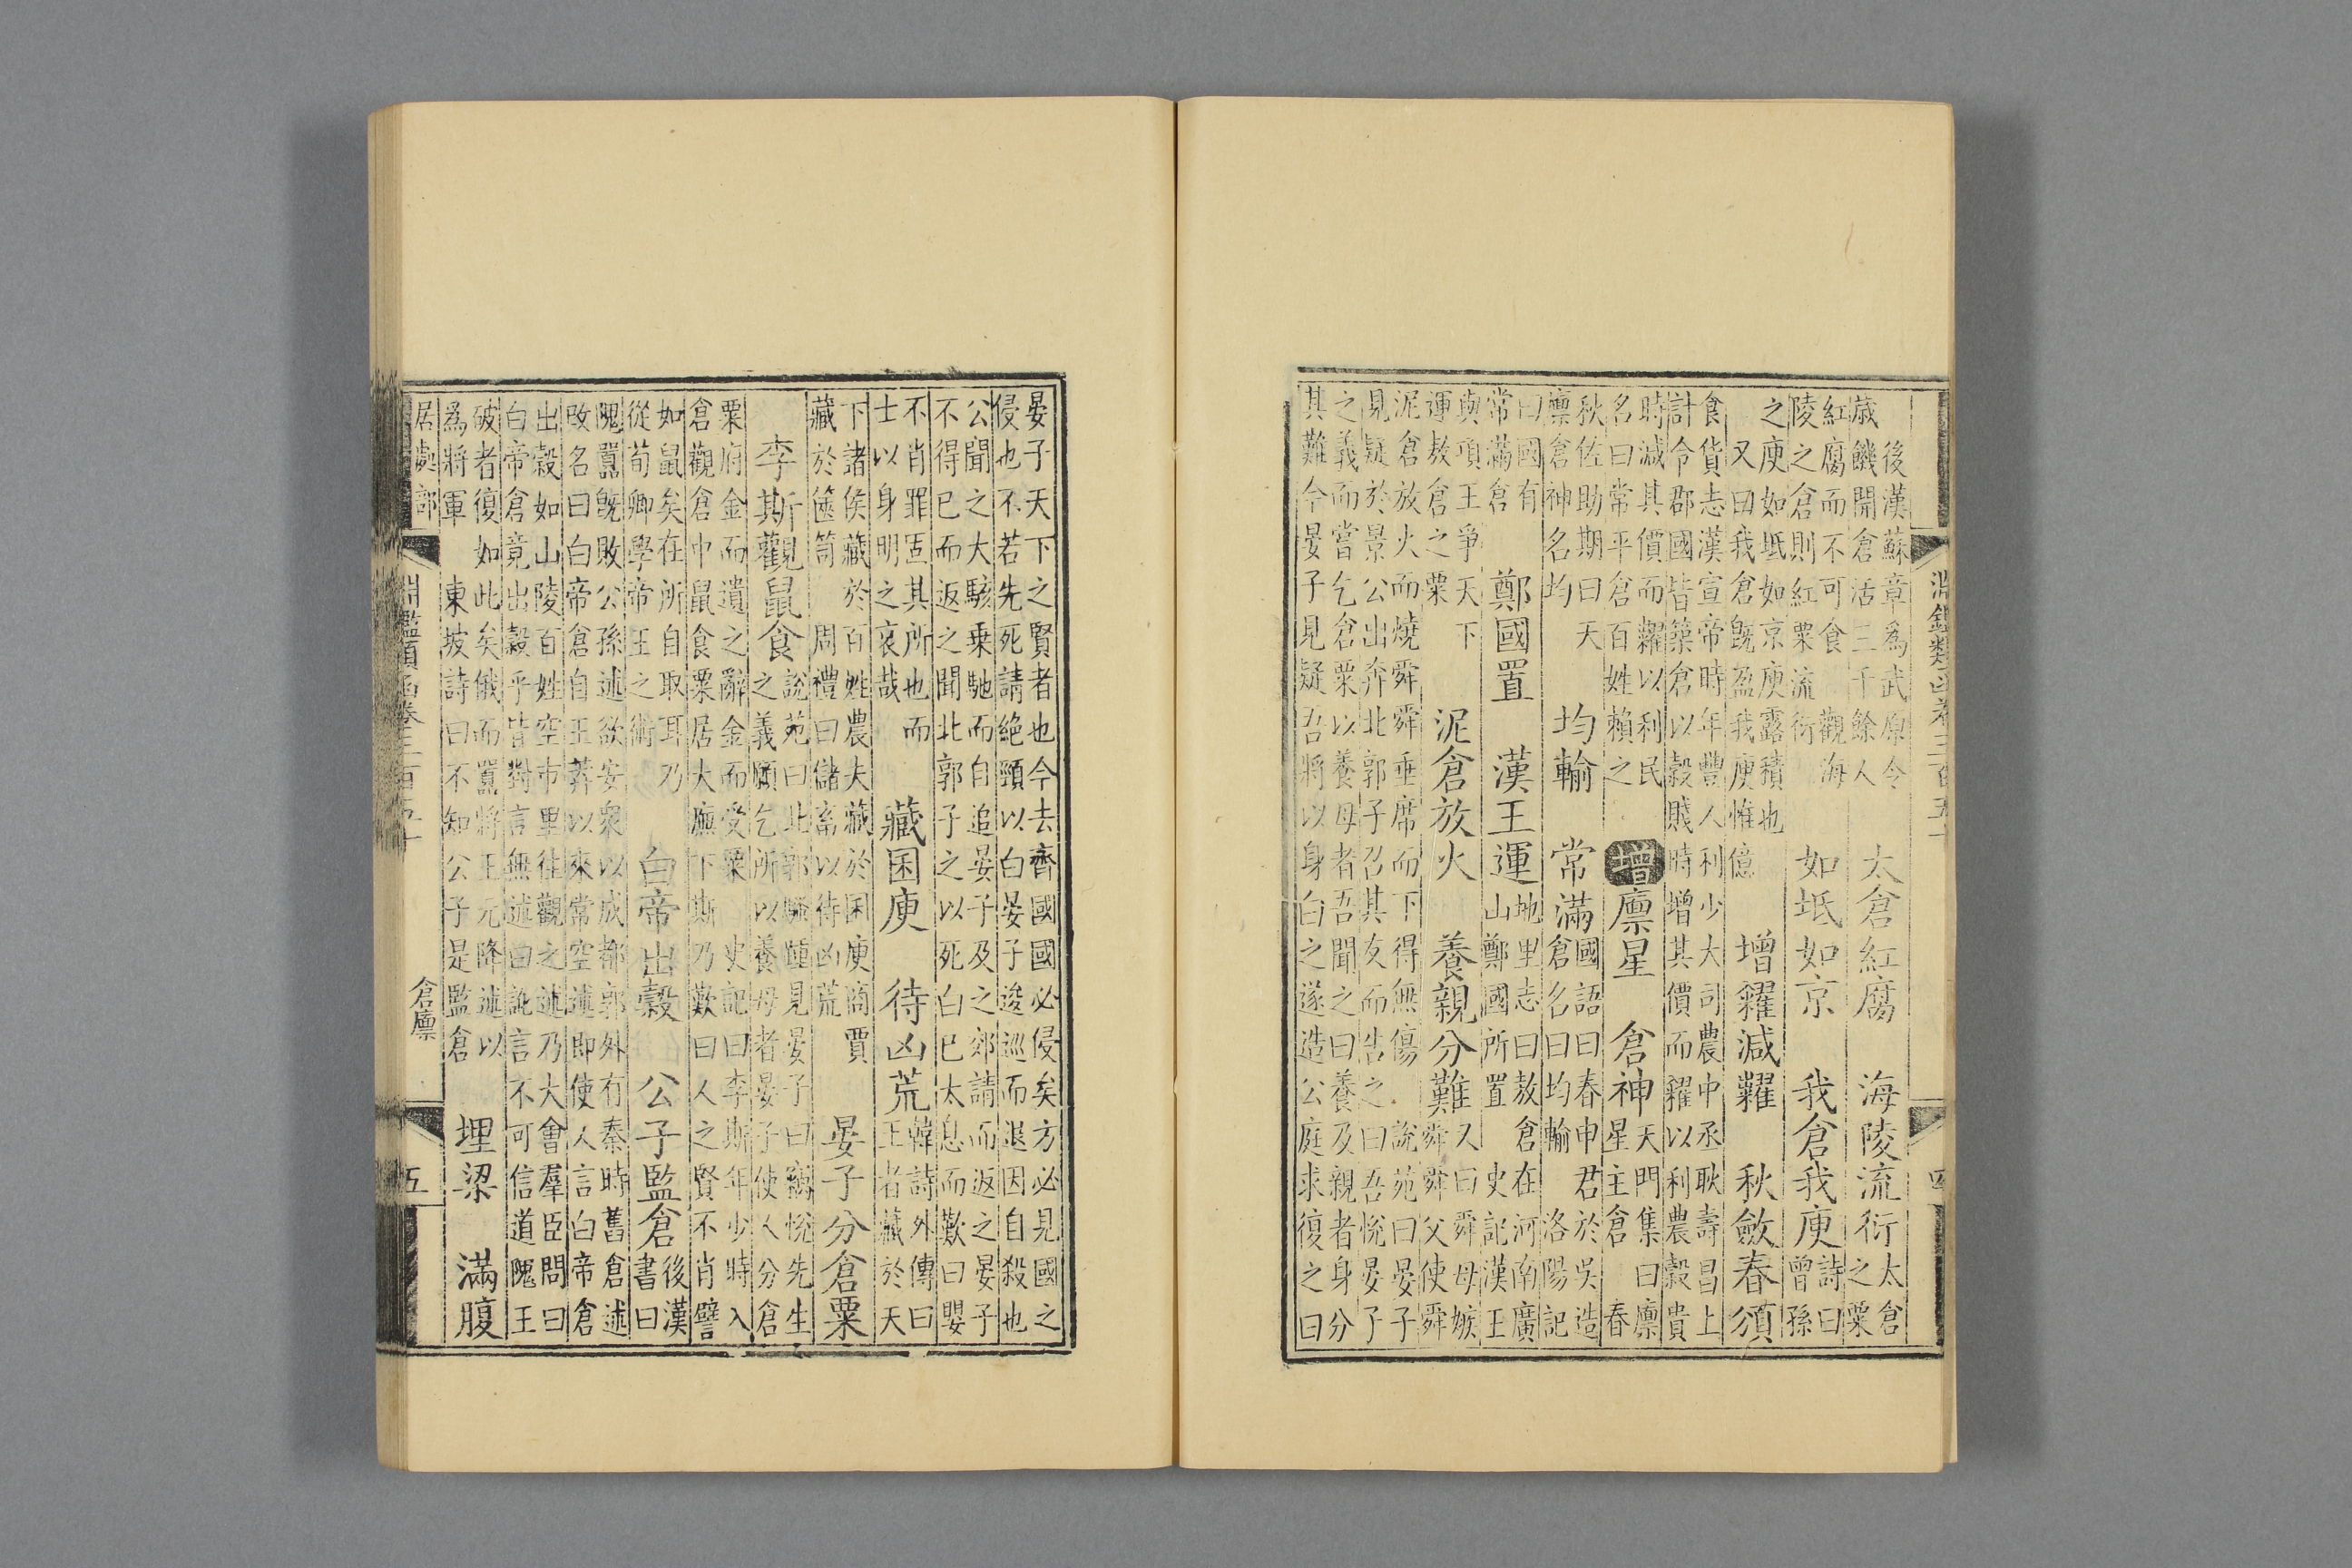 淵鑑類函卷三百五十 四
後漢蘇章為武原令
歲饑開倉活三千餘人
太倉紅腐 海陵流衍
太倉
之粟
紅腐而不可食 觀海
陵之倉則紅粟流衍
如坻如京 我倉我庾
詩曰
曾孫
之庾如坻如京庾露積也
又曰我倉既盈我庾惟億
增糴減糶 秋斂春頒
食貨志漢宣帝時年豐人利少大司農中丞耿壽昌上
計令郡國皆築倉以穀賤時增其價而糴以利農穀貴
時減其價而糶以利民
名曰常平倉百姓賴之
增 廩星 倉神
天門集曰廩
星主倉 春
秋佐助期曰天
廩倉神名均
均輸 常滿
國語曰春申君於吳造
倉名曰均輸 洛陽記
曰國有
常滿倉
鄭國置 漢王運
地里志曰敖倉在河南廣
山鄭國所置 史記漢王
與項王爭天下
運敖倉之粟
泥倉放火 養親分難
又曰舜母嫉
舜舜父使舜
泥倉放火而燒舜舜垂席而下得無傷 說苑曰晏子
見疑於景公出奔北郭子召其友而告之曰吾悅晏子
之義而嘗乞倉粟以養母者吾聞之曰養及親者身分
其難今晏子見疑吾將以身白之遂造公庭求復之曰
晏子天下之賢者也今去齊國國必侵矣方必見國之
侵也不若先死請絕頸以白晏子逡巡而退因自殺也
公聞之大駭乘馳而自追晏子及之郊請而返之晏子
不得已而返之聞北郭子之以死白已太息而歎曰嬰
不肖罪固其所也而
士以身明之哀哉
藏囷庾 待凶荒
韓詩外傳曰
王者藏於天
下諸侯藏於百姓農夫藏於囷庾商賈
藏於篋笥 周禮曰儲畜以待凶荒
晏子分倉粟
李斯觀鼠食
說苑曰北郭騷踵見晏子曰竊悅先生
之義願乞所以養母者晏子使人分倉
粟府金而遺之辭金而受粟 史記曰李斯年少時入
倉觀倉中鼠食粟居大廡下斯乃歎曰人之賢不肖譬
如鼠矣在所自取耳乃
從荀卿學帝王之術
白帝出穀 公子監倉
後漢
書曰
隗囂旣敗公孫述欲安衆以成都郭外有秦時舊倉述
改名曰白帝倉自王莽以來常空述即使人言白帝倉
出穀如山陵百姓空市里往觀之述乃大會羣臣問曰
白帝倉竟出穀乎皆對言無述曰訛言不可信道隗王
破者復如此矣俄而囂將王元降述以
為將軍 東坡詩曰不知公子是監倉
埋梁 滿腹
居處部 淵鑑類函卷三百五十 倉廩 五